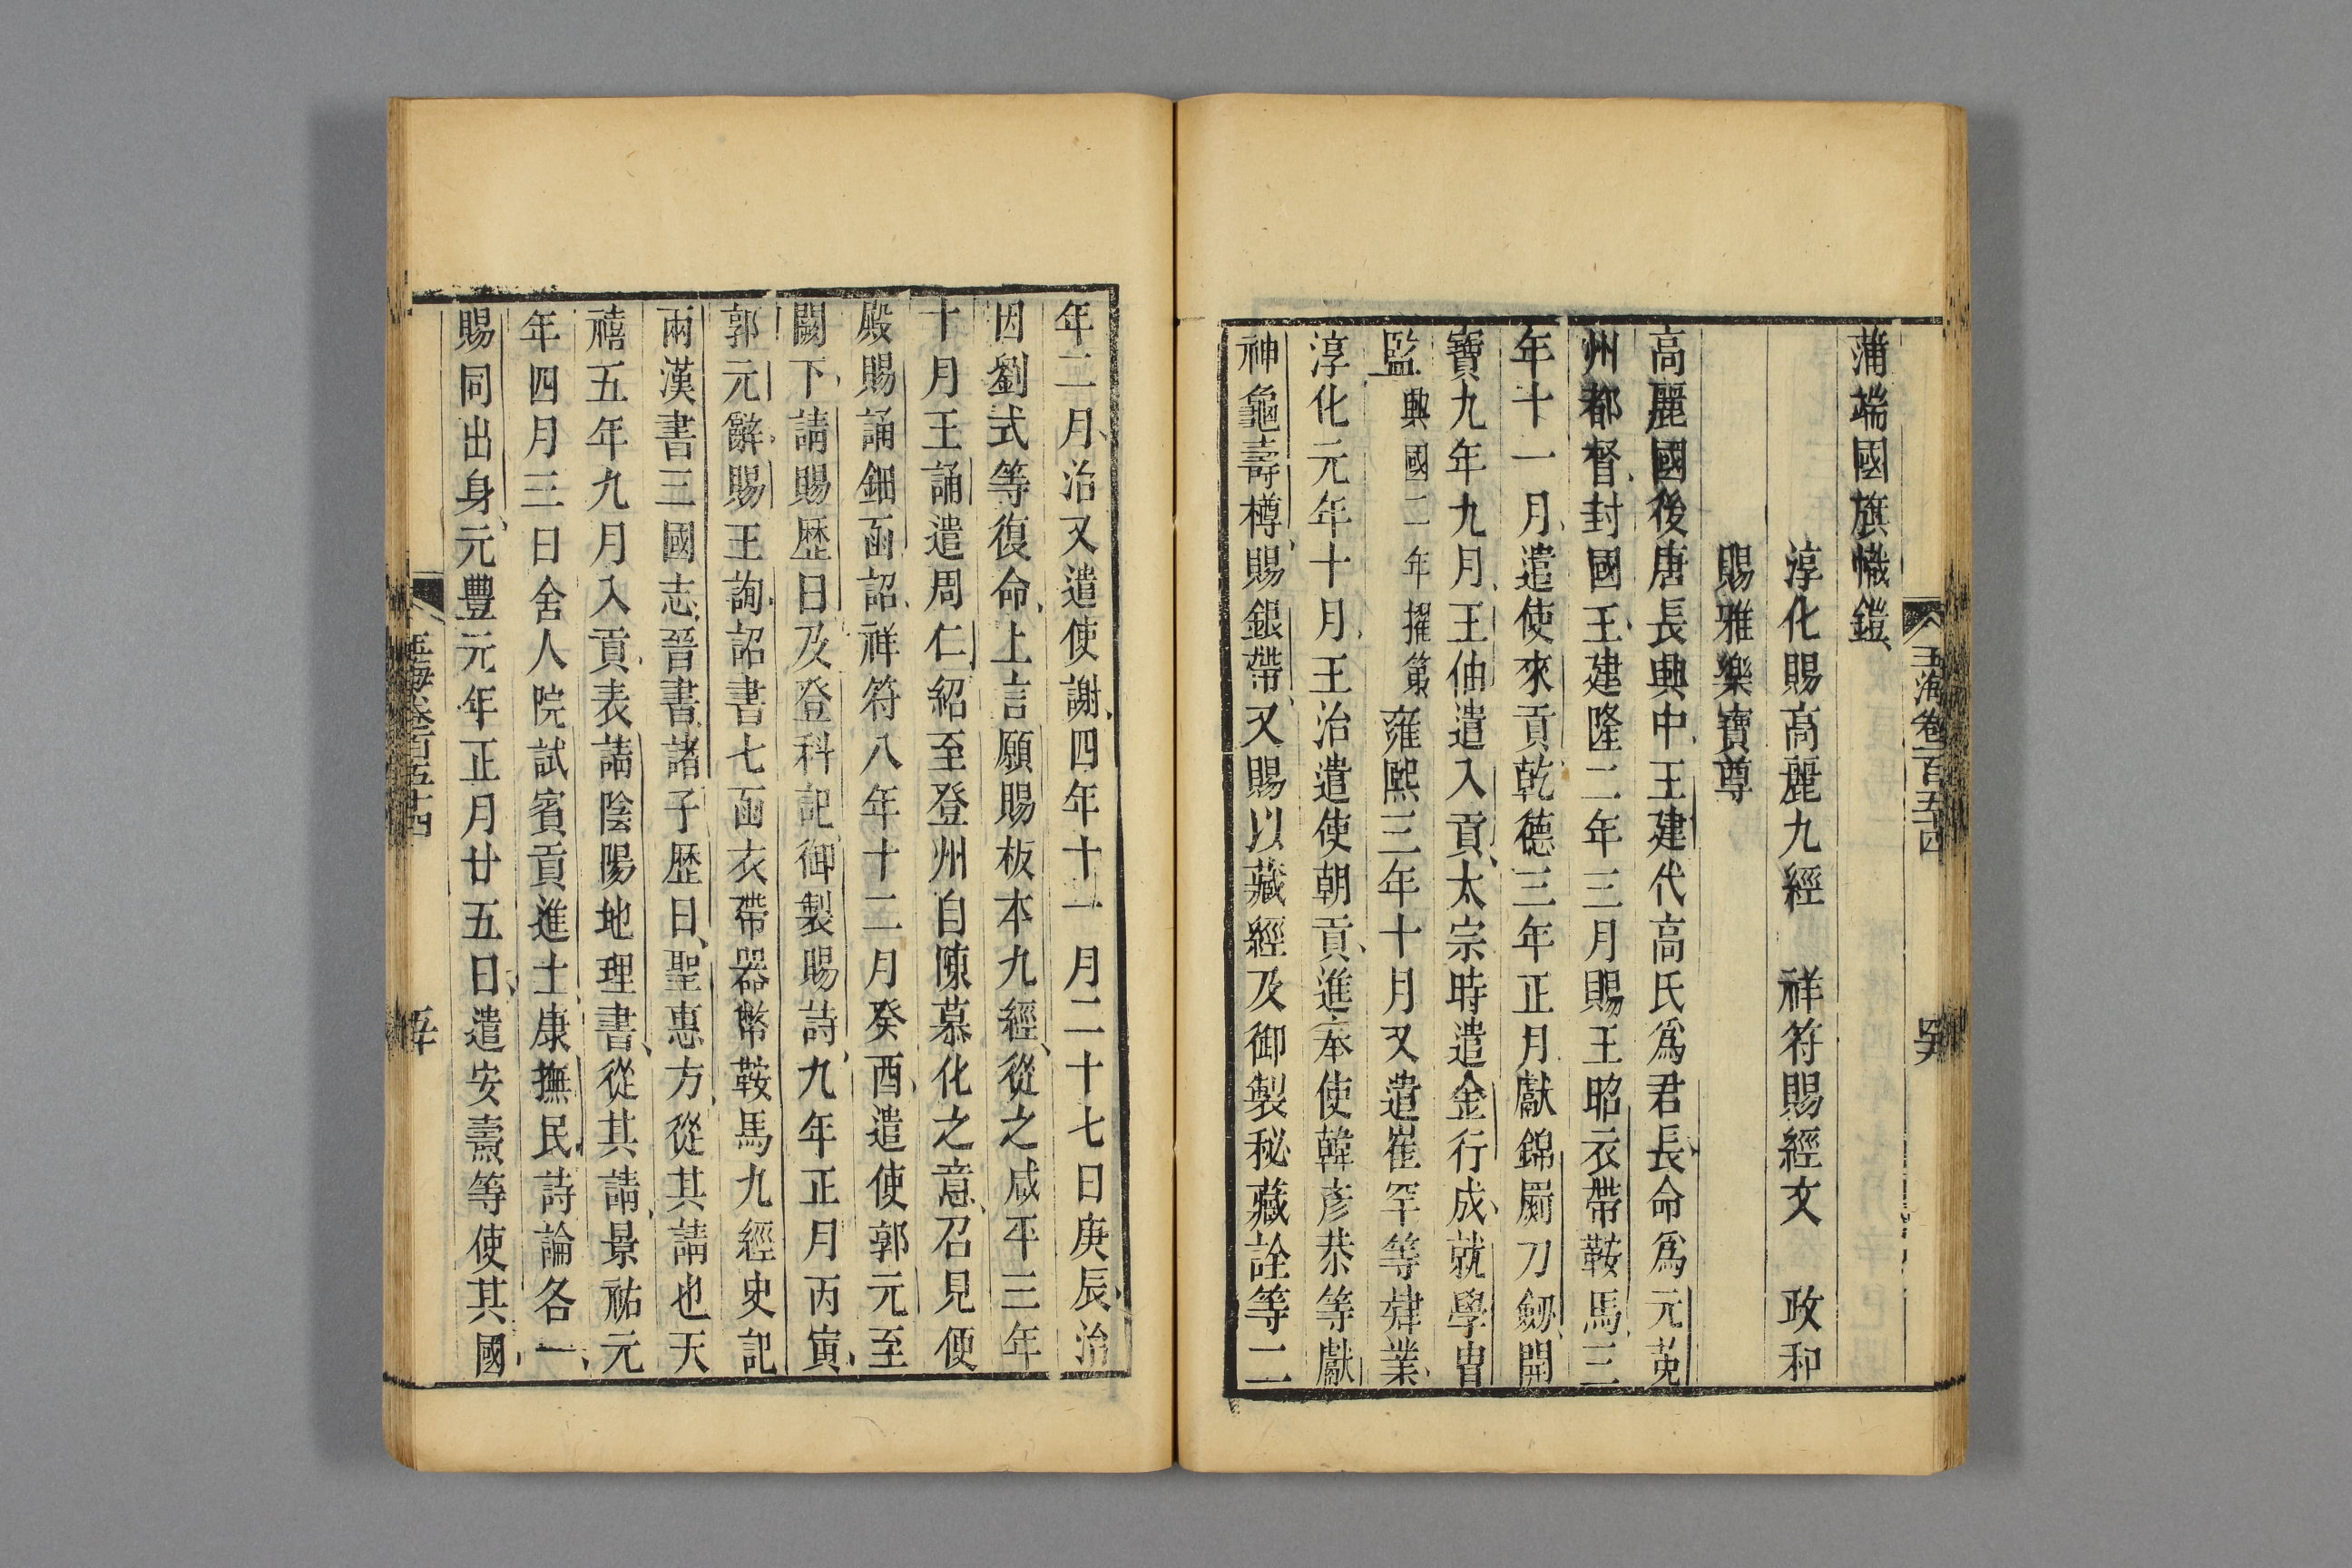 玉海卷一百五十四
蒲端國旗幟鎧
淳化賜高麗九經 祥符賜經文 政和
賜雅樂寶尊
高麗國後唐長興中王建代高氏爲君長命爲元菟
州都督封國王建隆二年三月賜王昭衣帶鞍馬三
年十一月遣使來貢乾德三年正月獻錦罽刀劒開
寶九年九月王伷遣入貢太宗時遣金行成就學胄
監興國二年擢第雍熙三年十月又遣崔罕等肄業
淳化元年十月王治遣使朝貢進奉使韓彦恭等獻
神龜壽樽賜銀帶又賜以藏經及御製秘藏詮等二
年二月治又遣使謝四年十一月二十七日庚辰治
因劉式等復命上言願賜板本九經從之咸平三年
十月王誦遣周仁紹至登州自陳慕化之意召見便
殿賜誦鈿函詔祥符八年十二月癸酉遣使郭元至
闕下請賜歷日及登科記御製賜詩九年正月丙寅
郭元辭賜王詢詔書七函衣帶器幣鞍馬九經史記
兩漢書三國志晉書諸子歷日聖惠方從其請也天
禧五年九月入貢表請陰陽地理書從其請景祐元
年四月三日舍人院試賓貢進士康撫民詩論各一
賜同出身元豐元年正月廿五日遣安燾等使其國